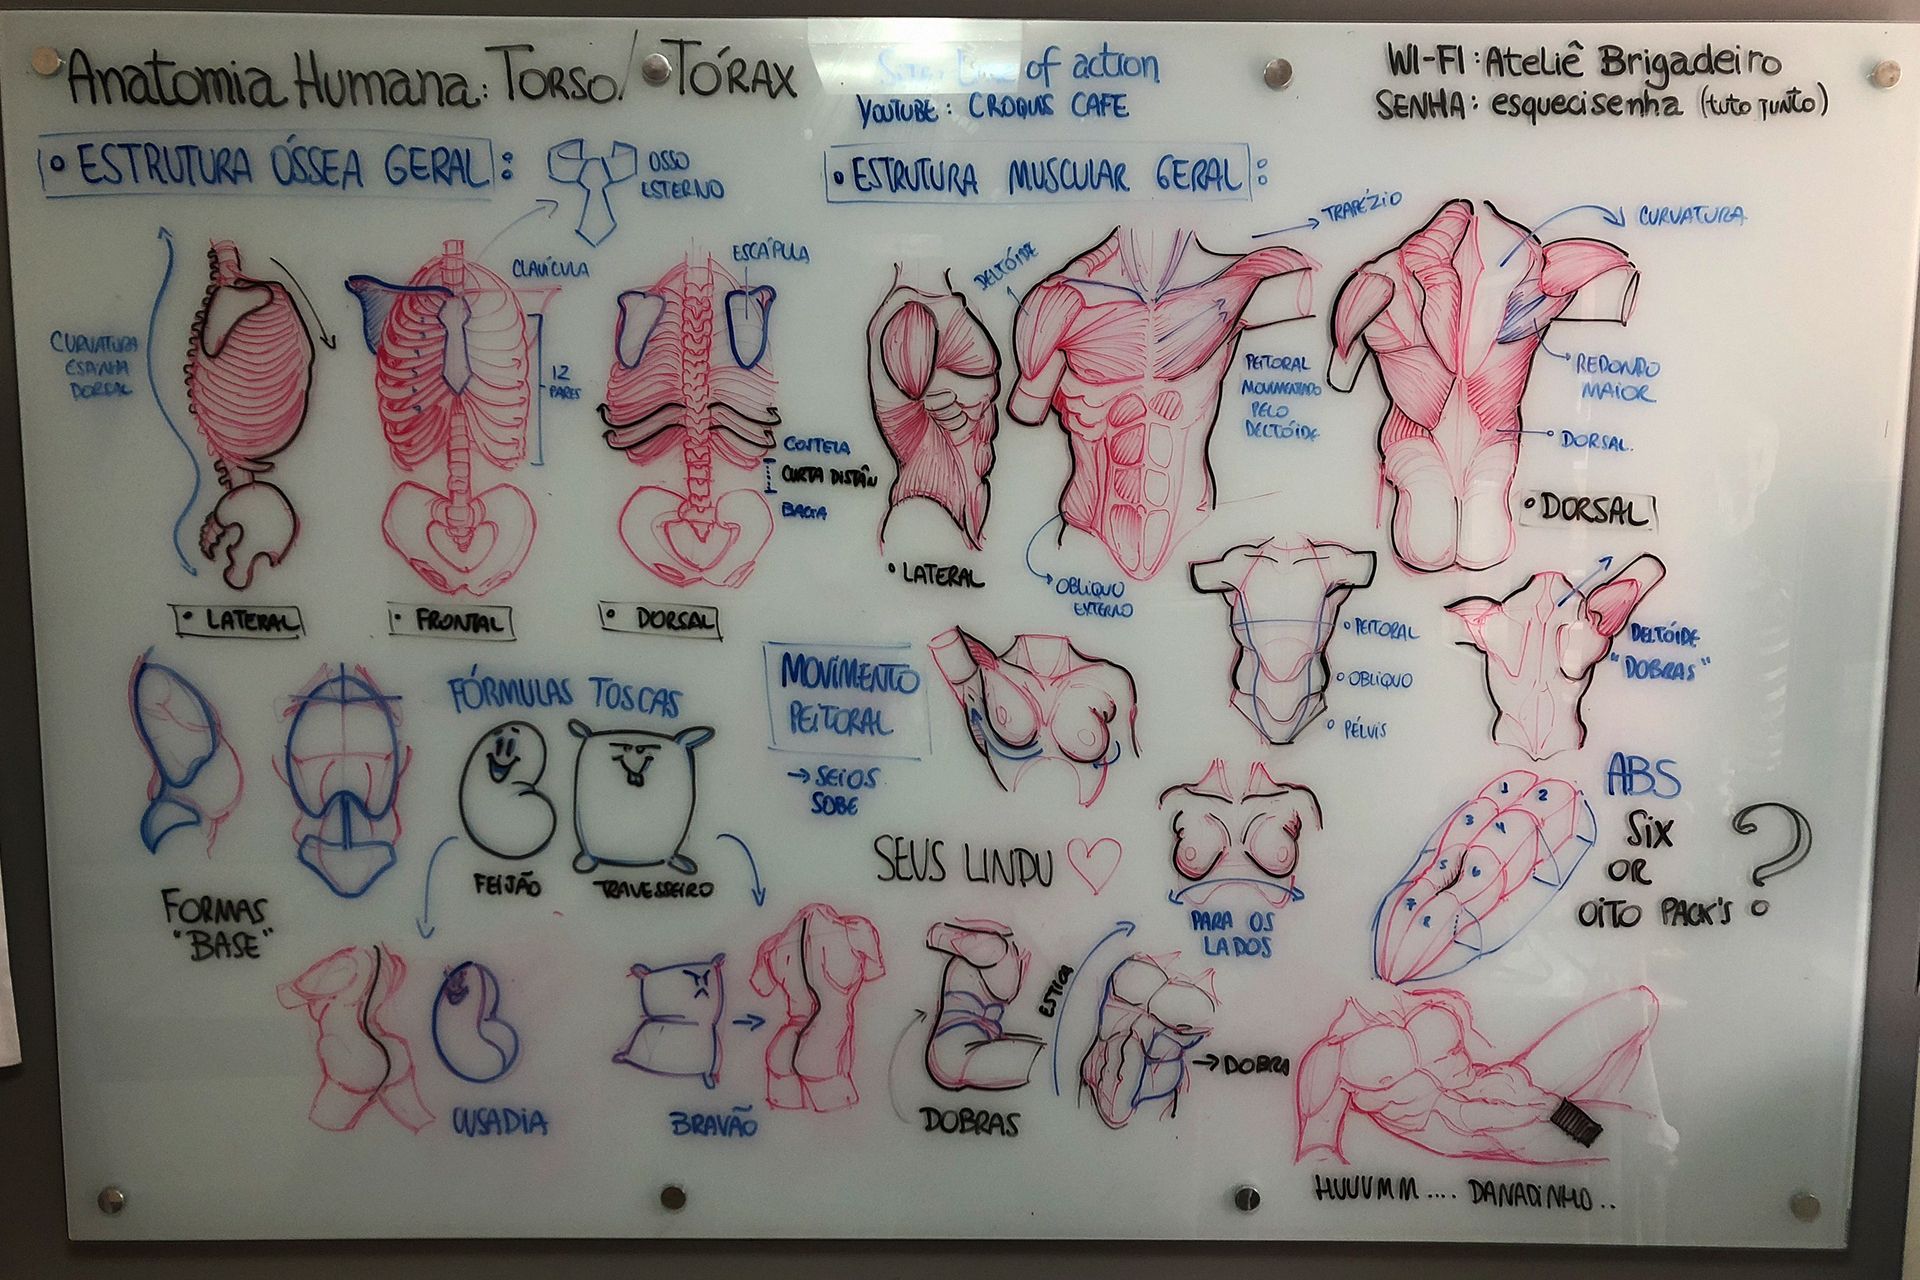 Anatomia Humana: TORSO/TÓRAX
Site: Line of action
YOUTUBE: CROQUIS CAFE
WI-FI: Ateliê Brigadeiro
SENHA: esquecisenha (tuto junto)
• ESTRUTURA ÓSSEA GERAL:
OSSO
ESTERNO
CURVATURA
ESPINHA
DORSAL
CLAVÍCULA
12
PARES
ESCÁPULA
COSTELA
CURTA DISTÂN
BACIA
• LATERAL
• FRONTAL
• DORSAL
• ESTRUTURA MUSCULAR GERAL:
DELTÓIDE
TRAPÉZIO
CURVATURA
PEITORAL
MOVIMENTADO
PELO
DELTÓIDE
REDONDO
MAIOR
DORSAL.
• DORSAL
• LATERAL
OBLIQUO
EXTERNO
PEITORAL
OBLIQUO
PÉLVIS
DELTÓIDE
"DOBRAS"
FORMAS
"BASE"
FÓRMULAS TOSCAS
FEIJÃO
TRAVESSEIRO
MOVIMENTO
PEITORAL
→ SEIOS
SOBE
SEUS LINDU ♡
PARA OS
LADOS
ABS
SIX
OR
OITO PACK'S ?
1 2
3 4
5 6
7 8
CUSADIA
BRAVÃO
DOBRAS
ESTICA
→ DOBRA
HUUUMM.... DANADINHO..